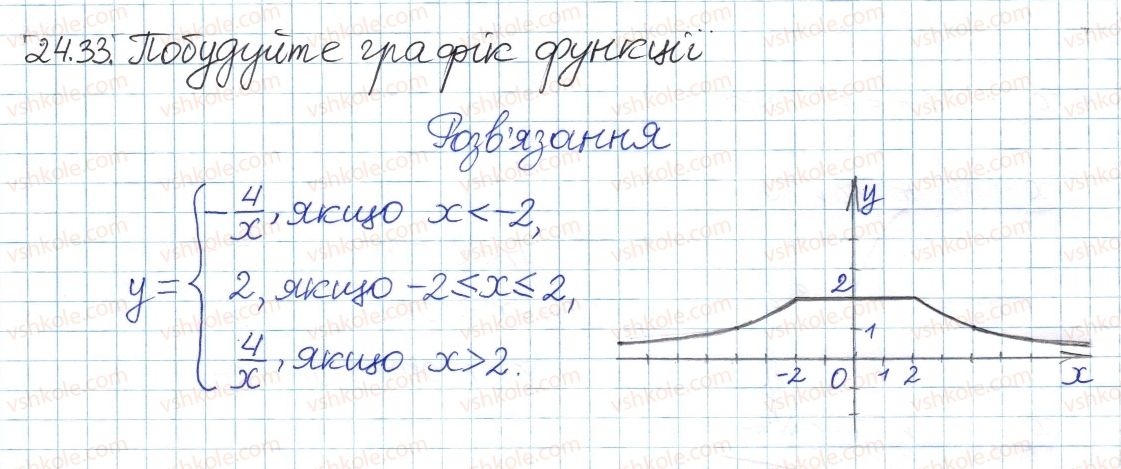 24.33. Побудуйте графік функції
Розв'язання
y = { -4/x, якщо x < -2,
2, якщо -2 ≤ x ≤ 2,
4/x, якщо x > 2.
y
2
1
-2 0 1 2 x
vshkole.com